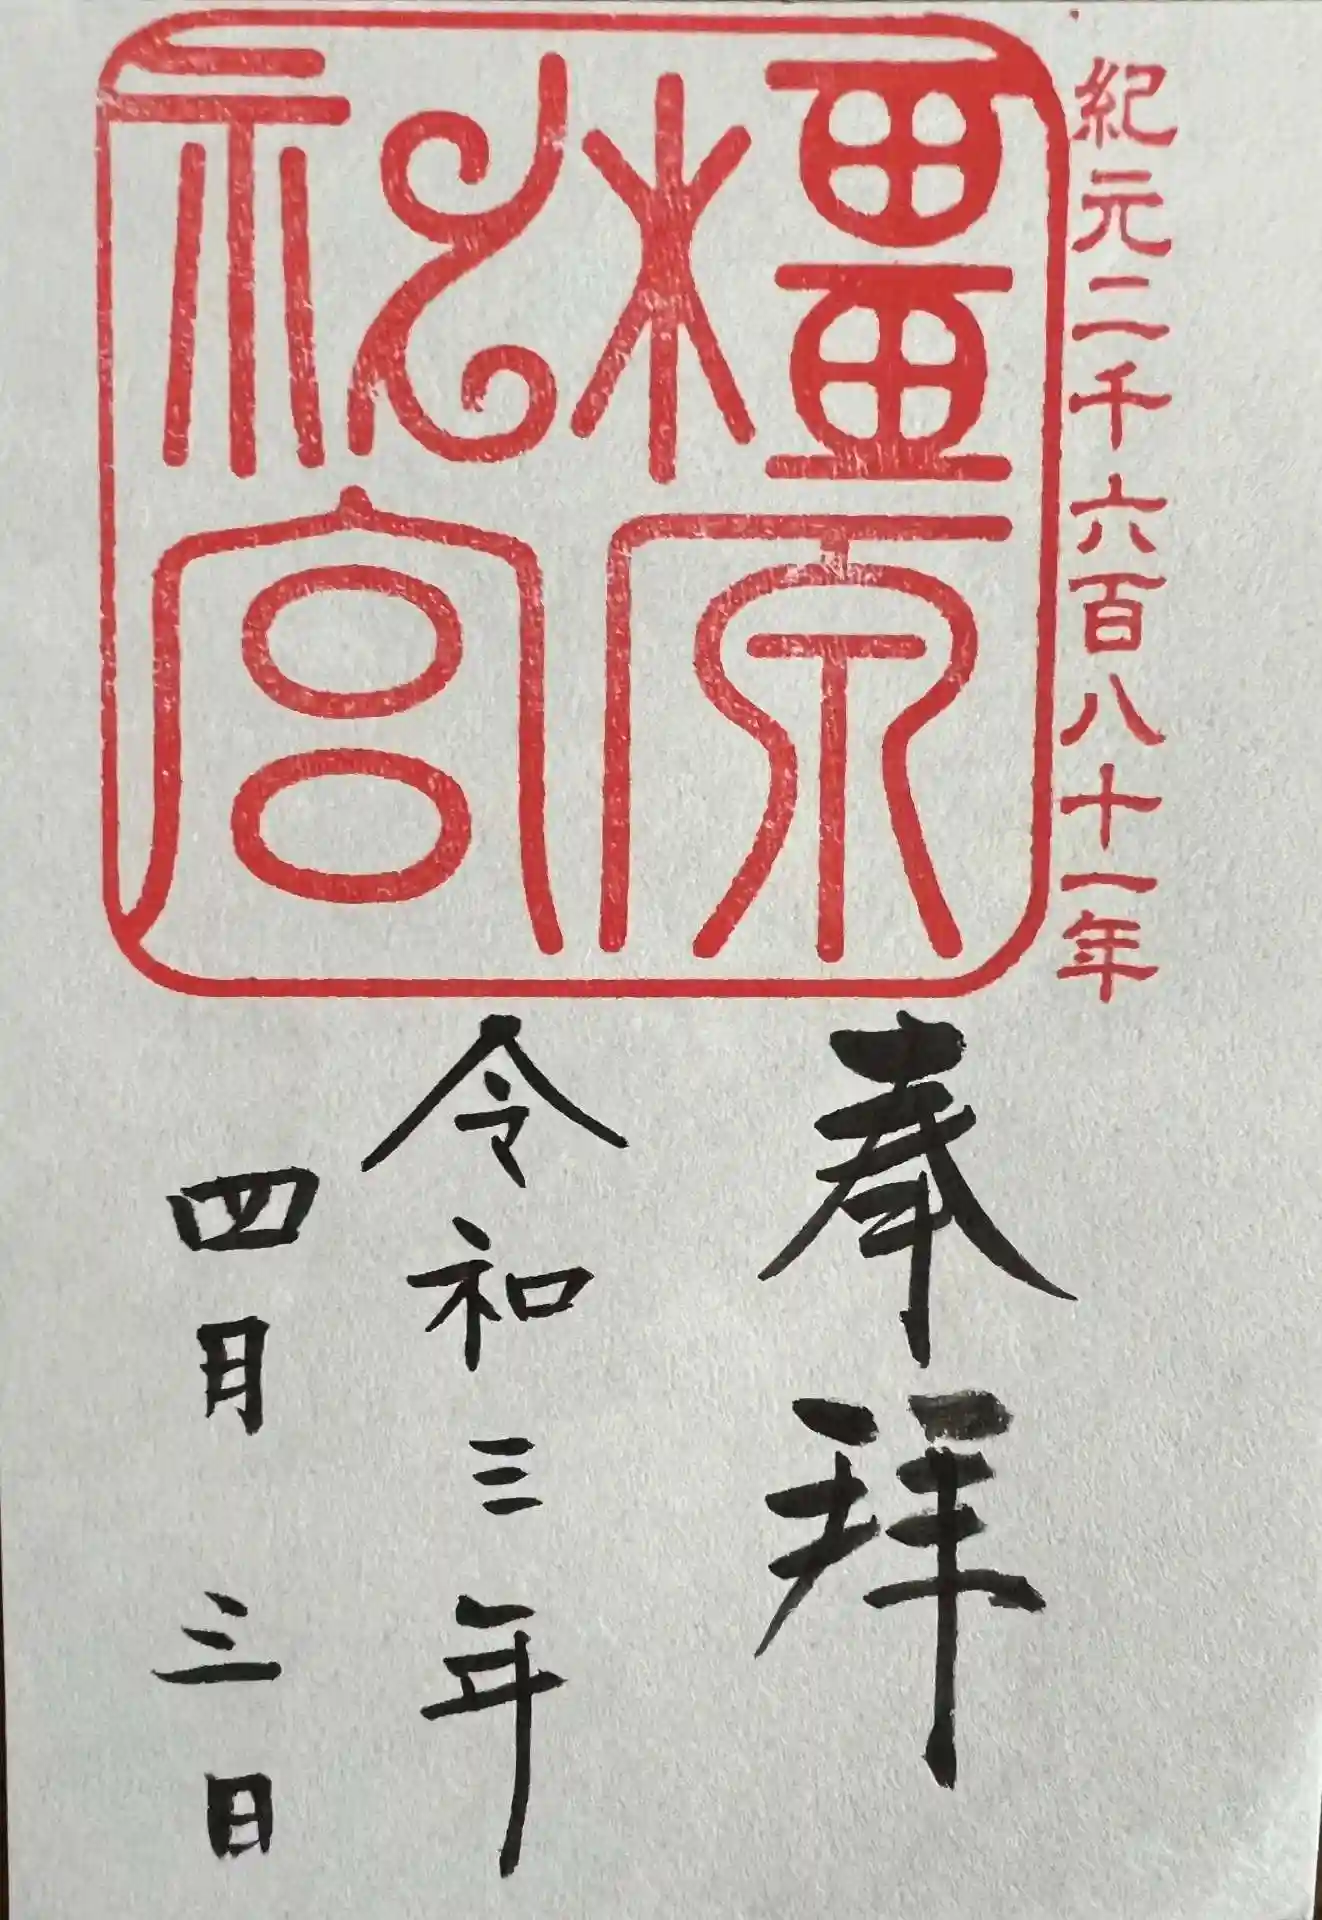 紀元二千六百八十一年
橿原
神宮
奉拝
令和三年
四月三日